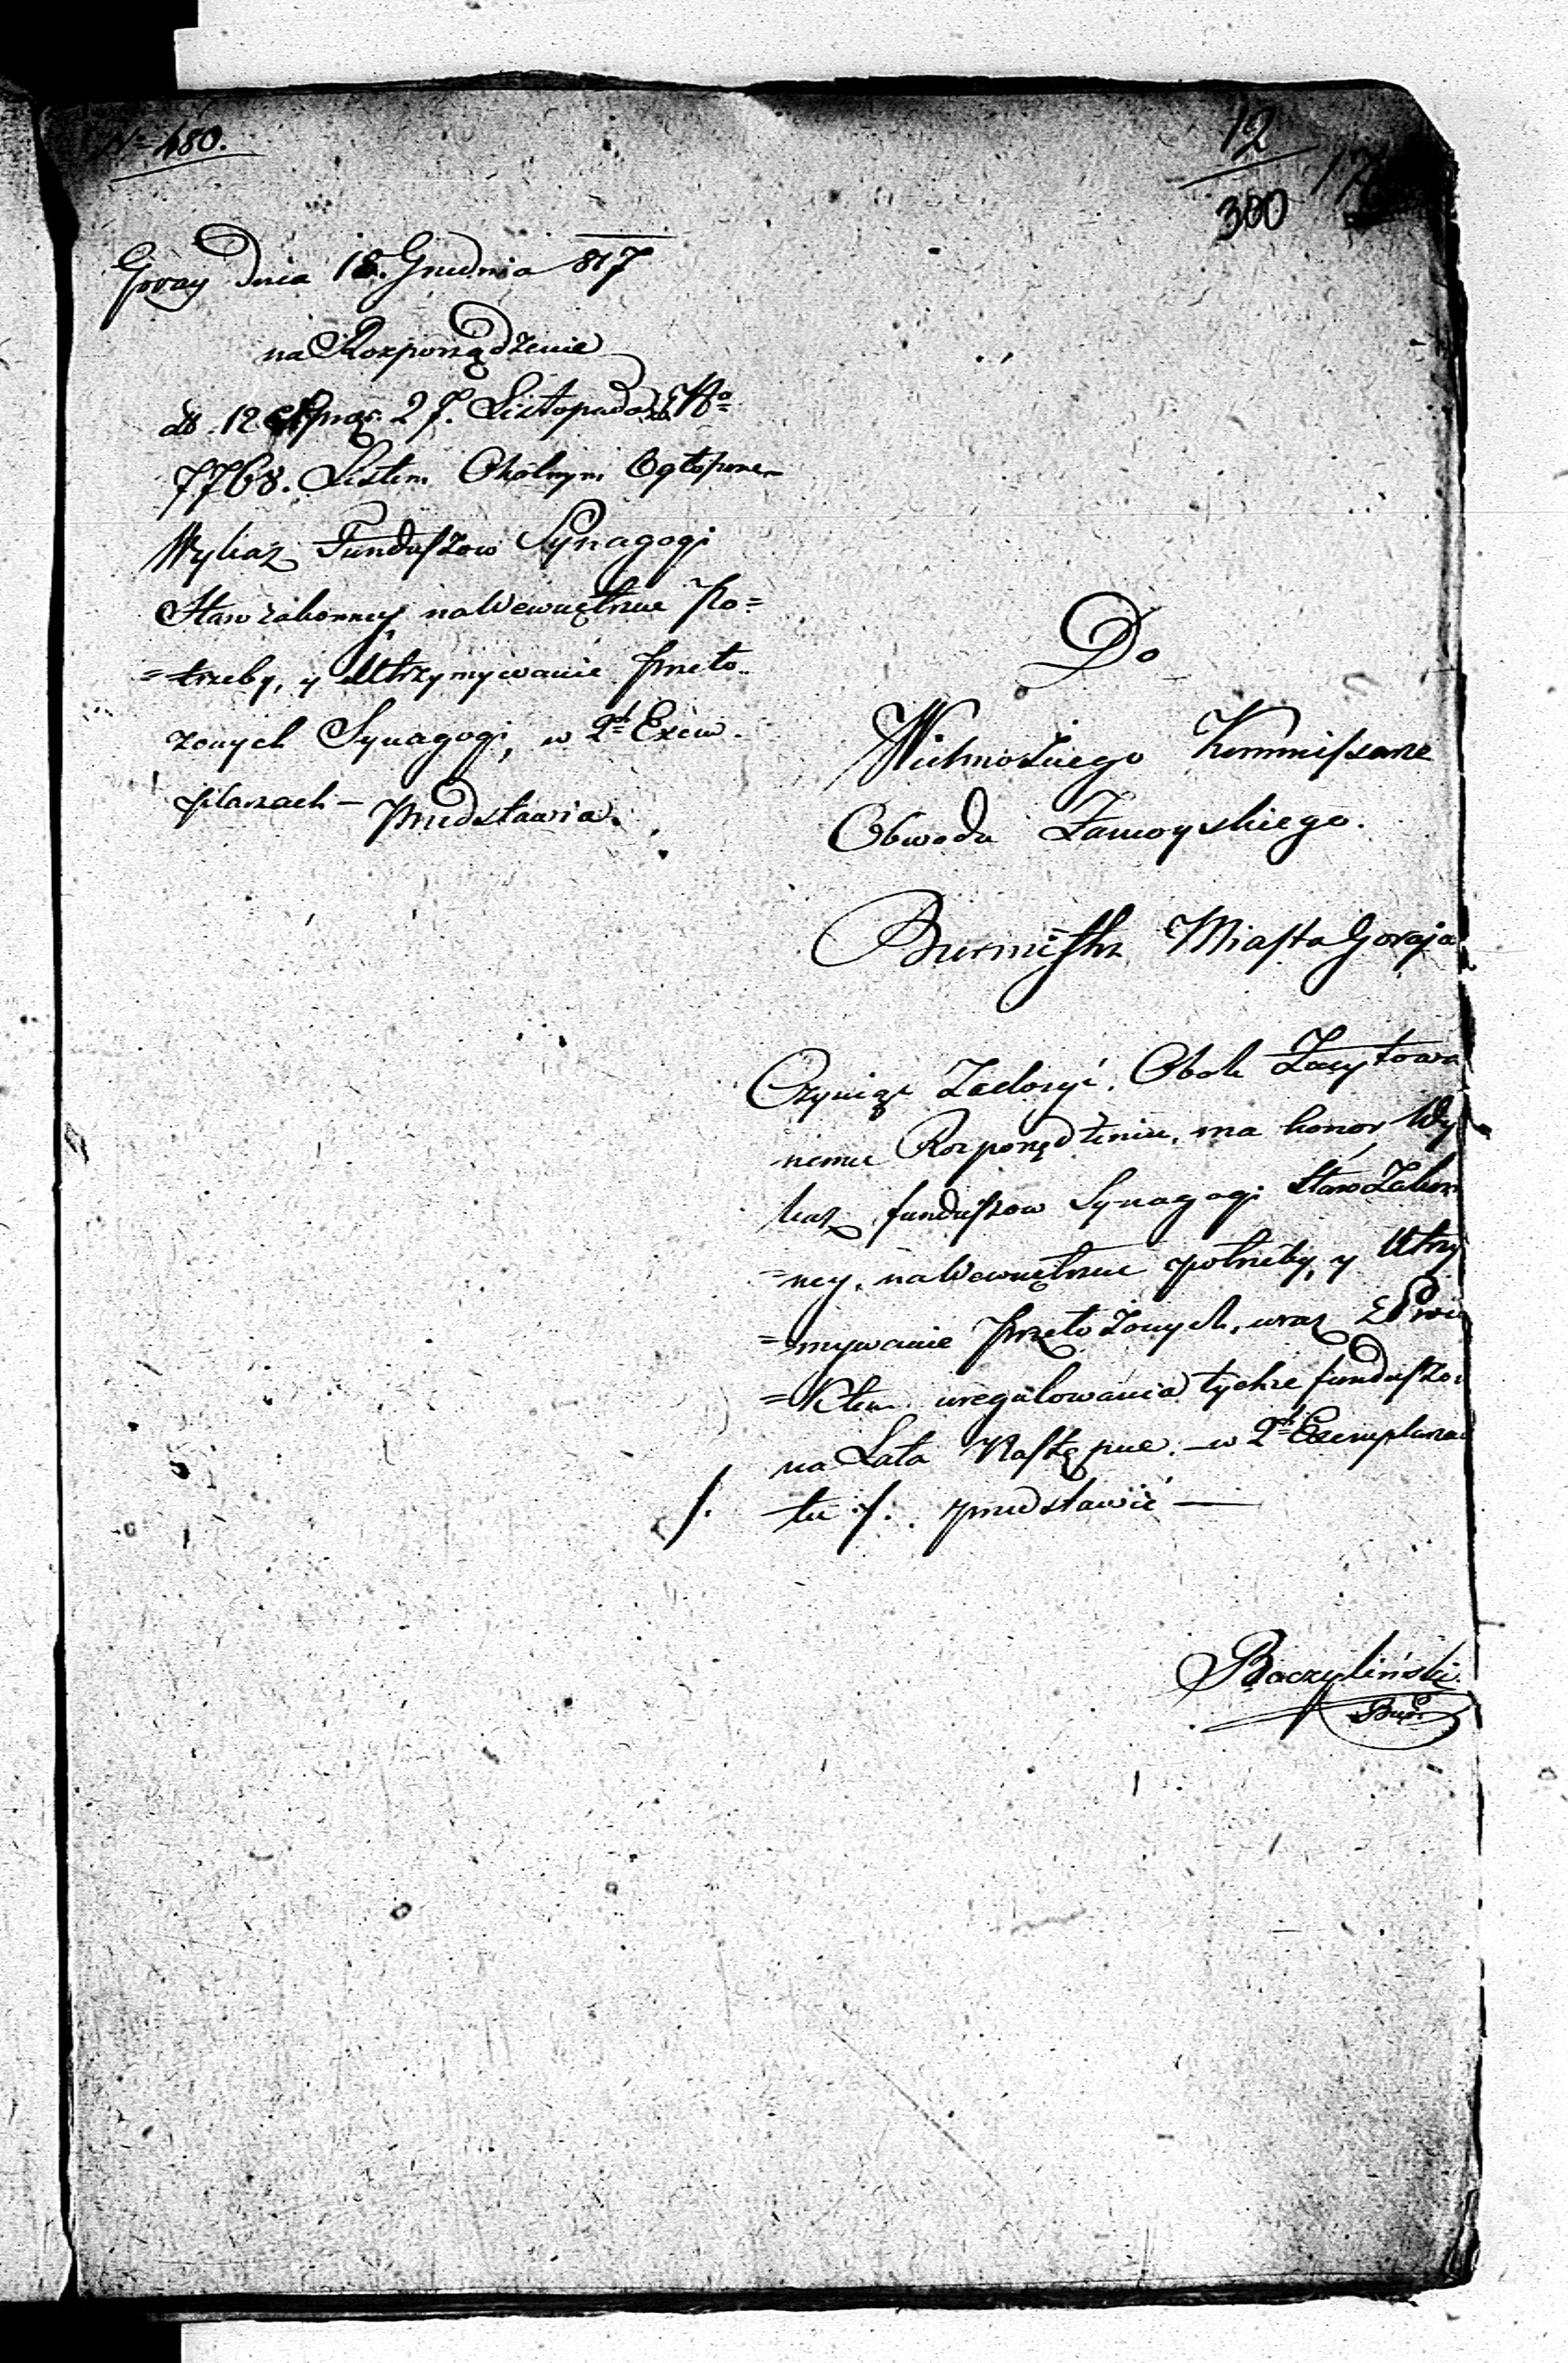 No 480.
12
300
17
Goray dnia 18. Grudnia 817
na Rozporządzenie
dd. 12 prąs. 27. Listopada No
7768. Listem Okolnym Ogłoszonem
Wykaz Funduszow Synagogi
Starozakonney na Wewnętrzne Po=
=trzeby, y Utrzymywanie Przeło-
zonych Synagogi, w 2ch Exem-
plarzach – Przedstawia.
Do
Wielmożnego Kommissarza
Obwodu Zamoyskiego.
Burmistrz Miasta Goraja
Czyniąc Zadosyć. Obok Zacytowa
nemu Rozporządzeniu, ma honor Wy
kaz funduszow Synagogi StaroZakon
=ney, na Wewnętrzne potrzeby, y Utrzy
=mywanie Przełożonych, wraz z Proie
=ktem uregulowania tychże funduszo
na Lata Nastepne. – w 2ch Exemplarzac
/. tu /. przedstawić —
Baczyliński
Burm